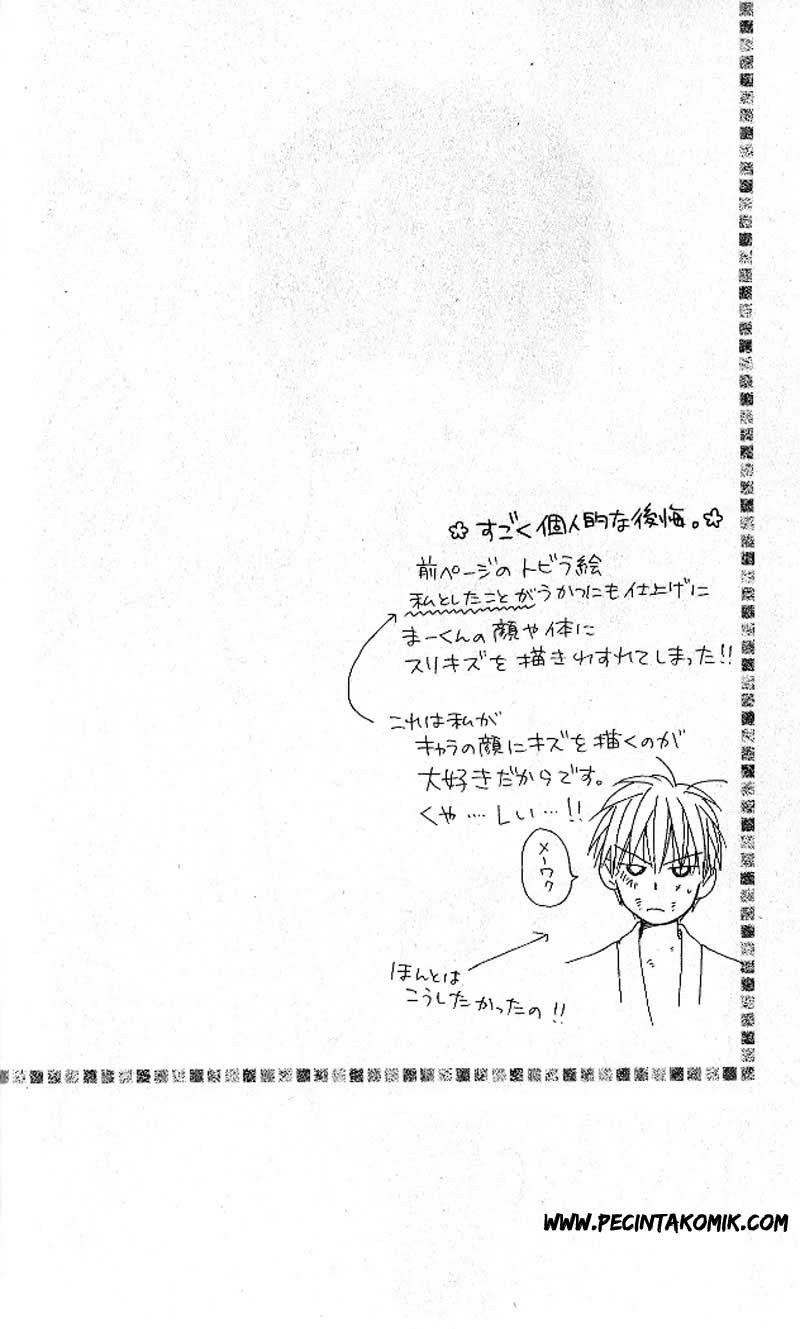 ✿すごく個人的な後悔。✿
前ページのトビラ絵
私としたことがうかつにも仕上げに
まーくんの顔や体に
スリキズを描きわすれてしまった!!
これは私が
キャラの顔にキズを描くのが
大好きだからです。
くや……しい…!!
メーワク
ほんとは
こうしたかったの!!
WWW.PECINTAKOMIK.COM